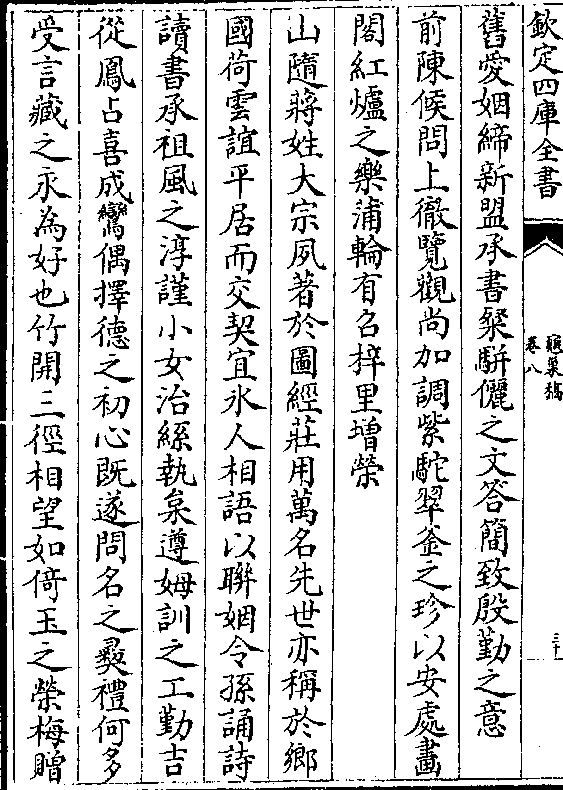 欽定四庫全書
龜巢稿
卷八
三十
舊愛姻締新盟承書粲駢儷之文答簡致殷勤之意
前陳候問上徹覽觀尚加調紫駝翠釜之珍以安處畫
閣紅爐之樂蒲輪有召梓里增榮
山隨蔣姓大宗夙著於圖經莊用萬名先世亦稱於鄉
國荷雲誼平居而交契宜氷人相語以聯姻令孫誦詩
讀書承祖風之淳謹小女治絲執枲遵姆訓之工勤吉
從鳳占喜成鸞偶擇德之初心既遂問名之彞禮何多
受言藏之永為好也竹開三徑相望如倚玉之榮梅贈